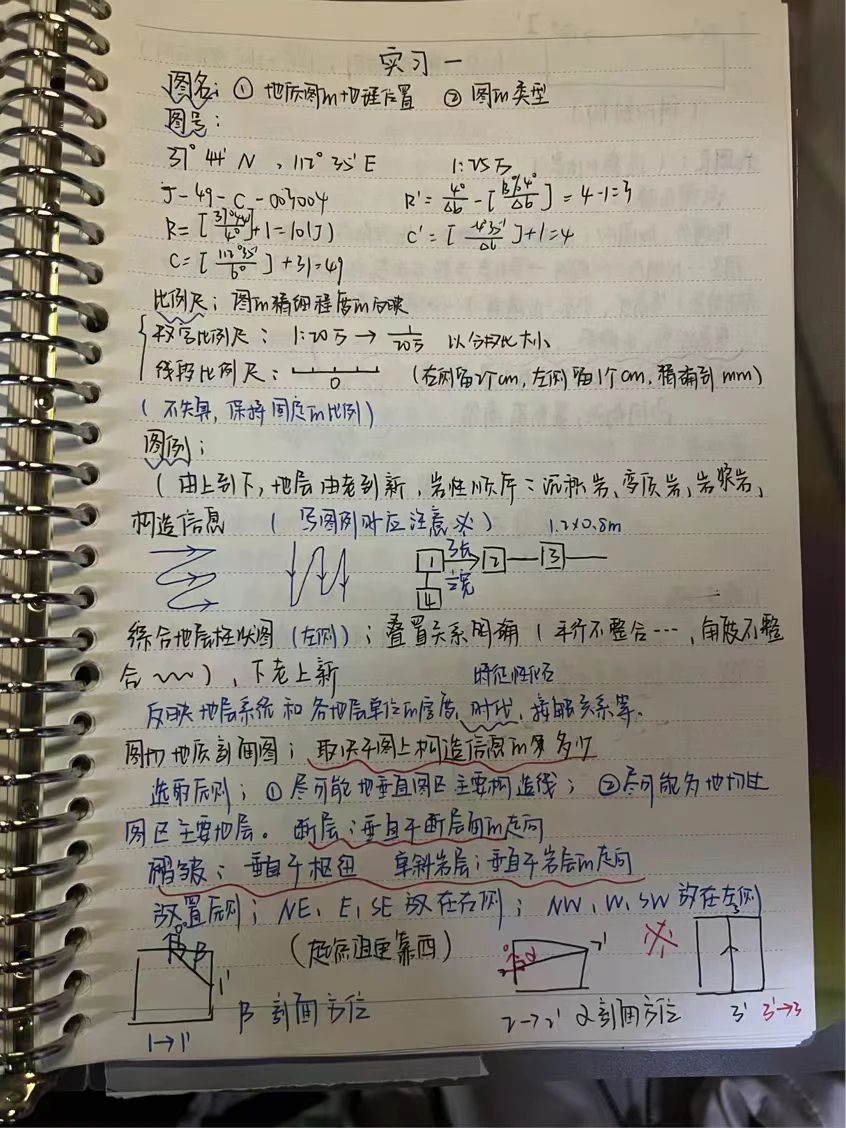 实习一
图名：① 地质图的地理位置 ② 图的类型
图号：
37° 44′ N，112° 35′ E 1:25万
J-49-C-003004 R′= 4°/Δb - [ /Δb ] = 4-1=3
R=[37°44′/4°]+1=10(J) C′=[ 4°35′/Δb ]+1=4
C=[112°35′/6°]+31=49
比例尺：图的精细程度的反映
数字比例尺：1:20万 → 1/20万 以分母比大小
线段比例尺： 0 （右侧留2个cm，左侧留1个cm，精确到mm）
（不失真，保持固定的比例）
图例：
（由上到下，地层由老到新，岩性顺序：沉积岩、变质岩、岩浆岩、
构造信息 （写图例时应注意※） 1.2×0.8m
1 2 3
4
综合地层柱状图（左侧）：叠置关系明确（平行不整合…，角度不整
合〰），下老上新 特征性化石
反映地层系统和各地层单位的厚度、时代、接触关系等。
图切地质剖面图：取决于图上构造信息的多少
选取原则：① 尽可能地垂直图区主要构造线；② 尽可能多地切过
图区主要地层。断层：垂直于断层面的走向
褶皱：垂直于枢纽 单斜岩层：垂直于岩层的走向
放置原则：NE、E、SE 放在右侧；NW、W、SW 放在左侧
β 1′ （起点退更靠西） 2 α 2′ ※ 3
1→1′ β 剖面方位 2→2′ α 剖面方位 3′ 3′→3